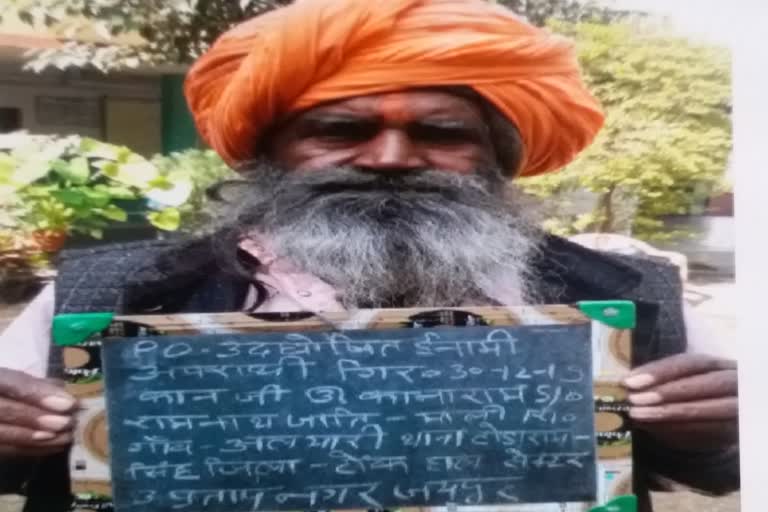 P.O - उदघोषित ईनामी
अपराधी गिर० 30-12-1
कान जी उ कानाराम S/o
रामनाथ जाति - माली R/o
गाँव अलमारी थाना टोडाराय-
सिंह जिला - टोंक हाल सेक्टर
3 प्रताप नगर जयपुर